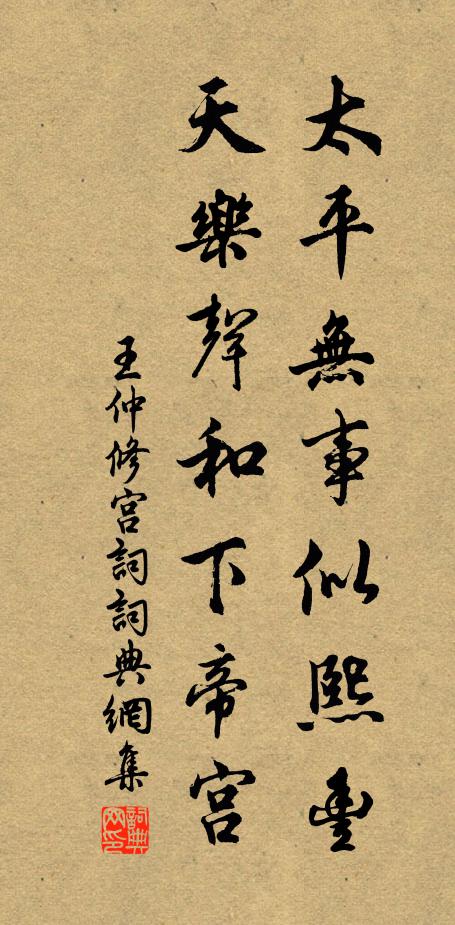 太平無事似熙豐
天樂聲和下帝宮
王仲修宮詞詞典網集
詞典網印